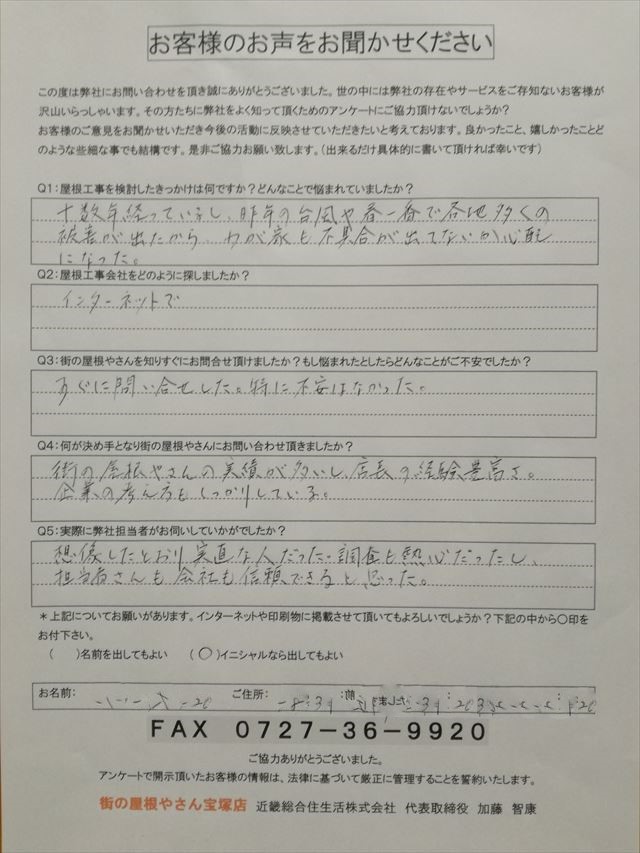 お客様のお声をお聞かせください
この度は弊社にお問い合わせを頂き誠にありがとうございました。世の中には弊社の存在やサービスをご存知ないお客様が
沢山いらっしゃいます。その方たちに弊社をよく知って頂くためのアンケートにご協力頂けないでしょうか?
お客様のご意見をお聞かせいただき今後の活動に反映させていただきたいと考えております。良かったこと、嬉しかったことど
のような些細な事でも結構です。是非ご協力お願い致します。（出来るだけ具体的に書いて頂ければ幸いです）
Q1:屋根工事を検討したきっかけは何ですか？どんなことで悩まれていましたか？
十数年経っているし、昨年の台風や春一番で各地多くの
被害が出たから、わが家も不具合が出てないか心配
になった。
Q2:屋根工事会社をどのように探しましたか？
インターネットで
Q3:街の屋根やさんを知りすぐにお問合せ頂けましたか？もし悩まれたとしたらどんなことがご不安でしたか？
すぐに問い合せした。特に不安はなかった。
Q4:何が決め手となり街の屋根やさんにお問い合わせ頂きましたか？
街の屋根やさんの実績が多いし、店長の経験豊富さ。
企業の考え方もしっかりしている。
Q5:実際に弊社担当者がお伺いしていかがでしたか？
想像したとおり実直な人だった。調査も熱心だったし、
担当者さんも会社も信頼できると思った。
＊上記についてお願いがあります。インターネットや印刷物に掲載させて頂いてもよろしいでしょうか？下記の中から〇印を
お付下さい。
（　）名前を出してもよい　（〇）イニシャルなら出してもよい
お名前:　ご住所:
FAX 0727-36-9920
ご協力ありがとうございました。
アンケートで開示頂いたお客様の情報は、法律に基づいて厳正に管理することを誓約いたします。
街の屋根やさん宝塚店　近畿総合住生活株式会社　代表取締役　加藤　智康